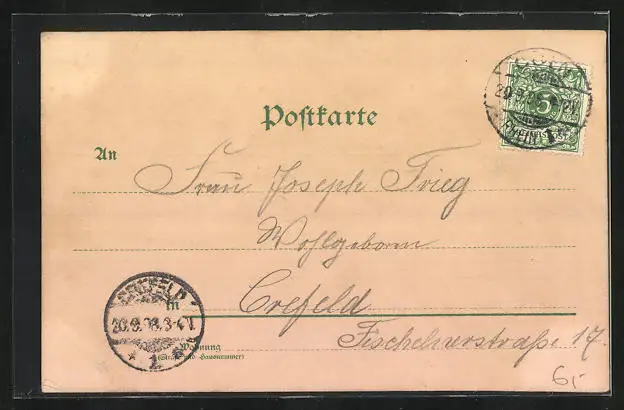 Postkarte
An
Frau Joseph Frieg
Wohlgeboren
in Crefeld
Fischelnerstraße 17.
Wohnung
(Straße und Hausnummer)
CREFELD
20.9.98.3-4N
* 1
5
6,-